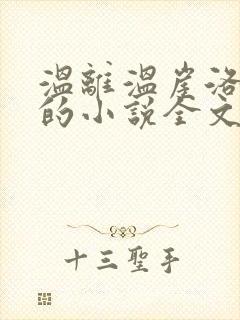 溫離溫崖洛
的小說全文
十三聖手